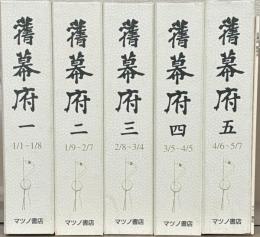 舊幕府 一
1/1~1/8
マツノ書店
舊幕府 二
1/9~2/7
マツノ書店
舊幕府 三
2/8~3/4
マツノ書店
舊幕府 四
3/5~4/5
マツノ書店
舊幕府 五
4/6~5/7
マツノ書店